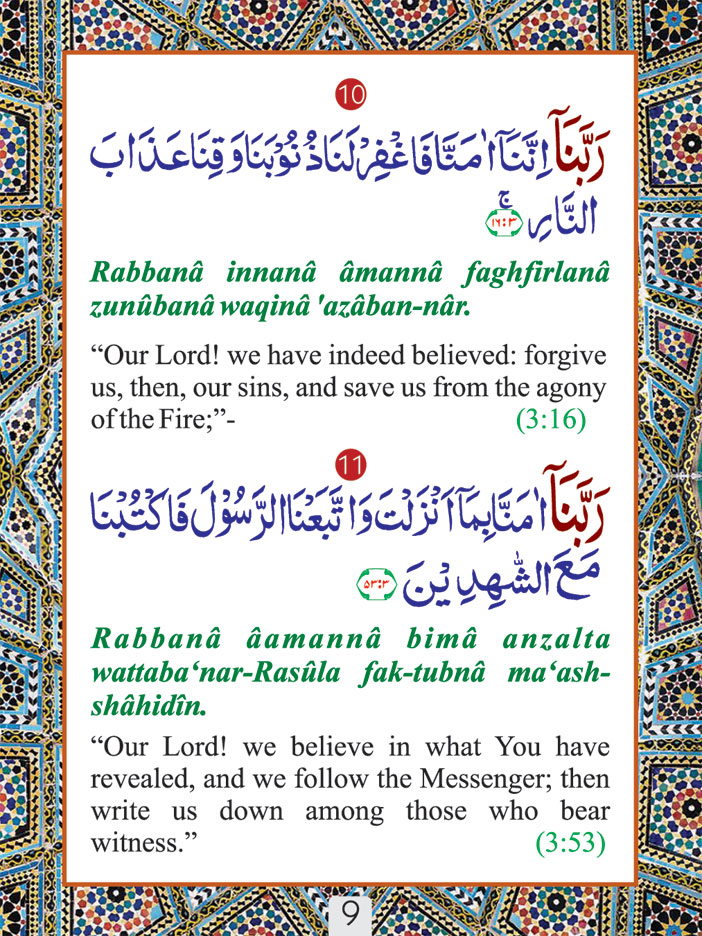 10
رَبَّنَآ اِنَّنَآ اٰمَنَّا فَاغْفِرْ لَنَا ذُنُوْبَنَا وَقِنَا عَذَابَ
النَّارِ ۚ ١٦:٣
Rabbanâ innanâ âmannâ faghfirlanâ
zunûbanâ waqinâ 'azâban-nâr.
“Our Lord! we have indeed believed: forgive
us, then, our sins, and save us from the agony
of the Fire;”- (3:16)
11
رَبَّنَآ اٰمَنَّا بِمَآ اَنْزَلْتَ وَاتَّبَعْنَا الرَّسُوْلَ فَاكْتُبْنَا
مَعَ الشّٰهِدِيْنَ ٥٣:٣
Rabbanâ âamannâ bimâ anzalta
wattaba‘nar-Rasûla fak-tubnâ ma‘ash-
shâhidîn.
“Our Lord! we believe in what You have
revealed, and we follow the Messenger; then
write us down among those who bear
witness.” (3:53)
9